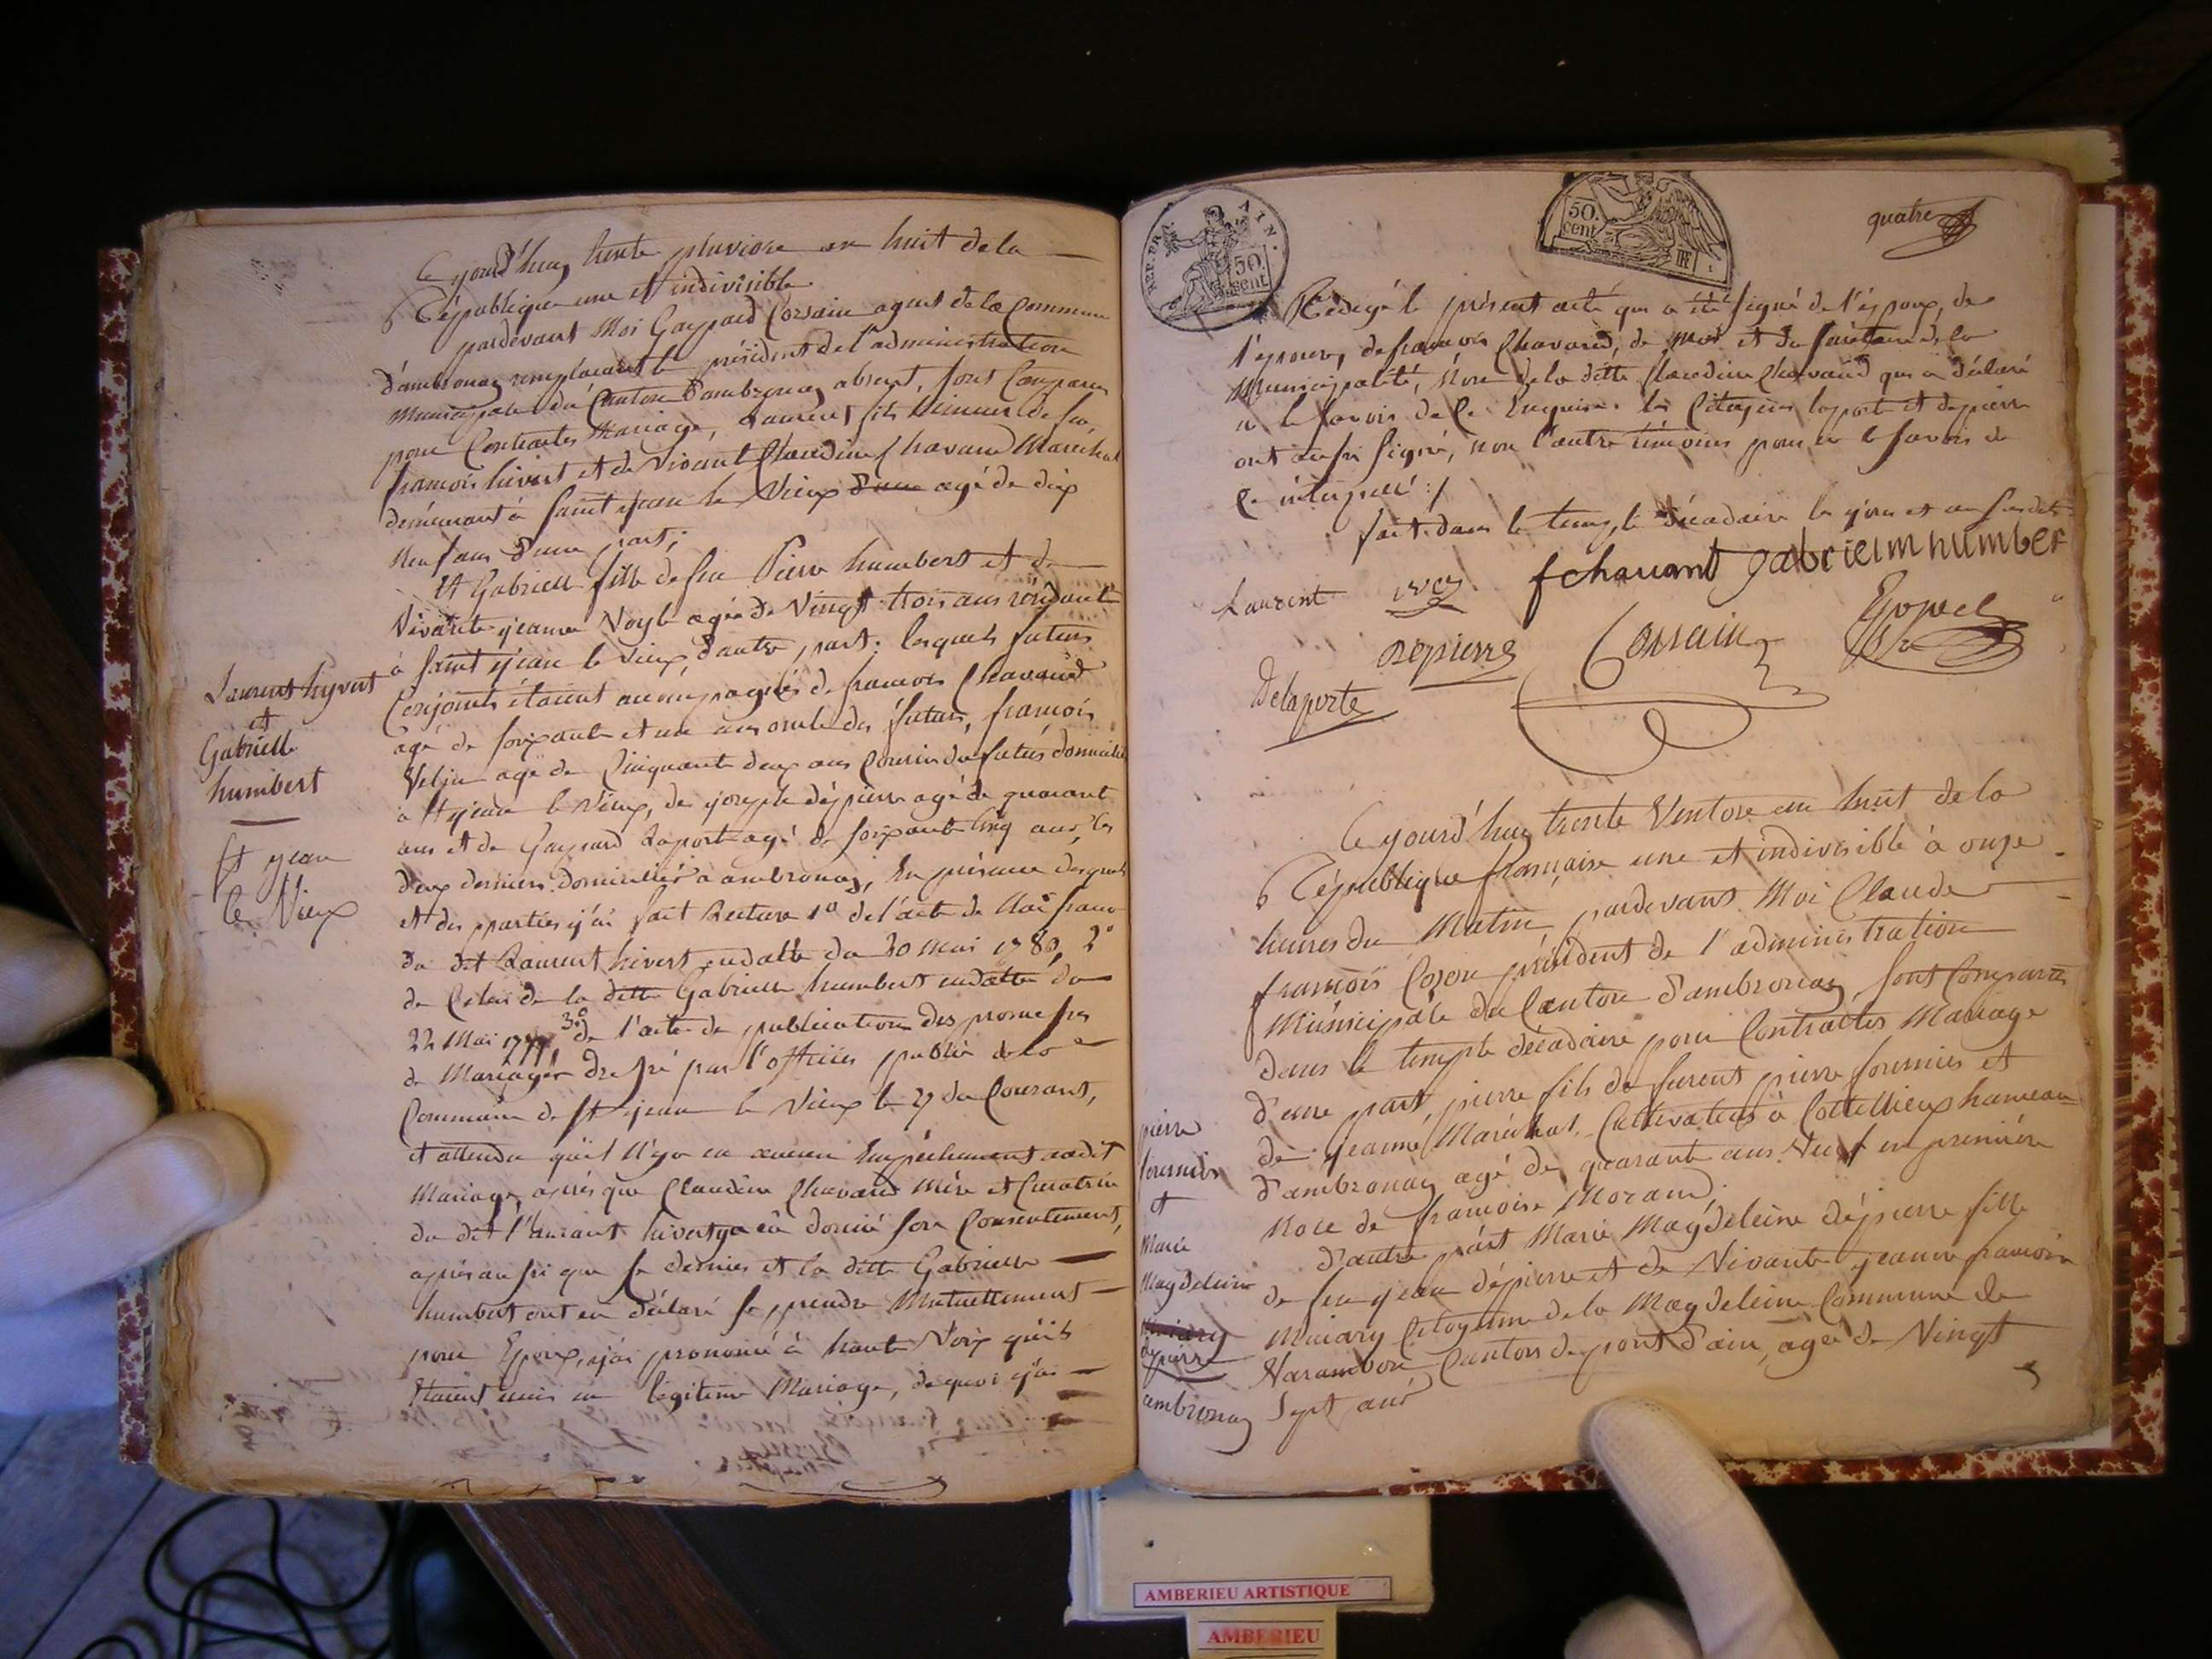 Ce jourd'huy trente pluviose an huit de la
République une et indivisible
pardevant Moi Gaspard Corsain agent de la Commune
d'ambronay remplacant le président de l'administration
Municipale du Canton d'ambronay absent, sont Comparus
pour Contracter Mariage, Laurent fils Mineur de feu
francois hivert et de vivante Claudine Chavand Maréchal
demeurant à Saint jean le Vieux d'une agé de dix
neuf ans d'une part;
Et Gabrielle fille de feu Pierre humbert et de
vivante jeanne agée de Vingt trois ans résidante
à Saint jean le Vieux d'autre part: lesquels futurs
Conjoints étaient accompagnés de francois Chavand
agé de soixante et un ans oncle du futur, francois
agé de Cinquante deux ans Cousin du futur domicilié
à St jean le Vieux, de joseph dépierre agé de quarant
ans et de Gaspard Laporte agé de soixante Cinq ans, les
deux derniers domiciliés à ambronay, En présence desquels
et des parties j'ai fait Lecture 1º de l'acte de Naissance
du dit Laurent hivert endatte du 30 mai 1780, 2º
de Celui de la ditte Gabrielle humbert endatte du
22 Mai 3º de l'acte de publication des promesses
de Mariage dressé par l'officier public de la
Commune de St jean le Vieux le 27 du Courant,
et attendu qu'il N'y a eu aucun Empêchement audit
Mariage, après que Claudine Chavand Mère et Curatrice
du dit Laurant hivert y a eû donné son Consentement,
après aussi que ce dernier et la ditte Gabrielle
humbert ont eu déclaré se prendre Mutuellement
pour Epoux, j'ai prononcé à haute Voix qu'ils
étaient unis en légitime Mariage, de quoi j'ai
Laurent hyvert
et
Gabrielle
humbert
St jean
le Vieux
REP. FRA. AIN.
50.
cent
50.
cent
quatre
Rédigé le présent acte qui a été signé de l'époux, de
l'epouse, de francois Chavand, de moi et du secrétaire de la
Municipalité, Non de la ditte Claudine Chavand qui a déclaré
n le savoir de ce Enquise. les Citoyens laporte et depierre
ont aussi signé, non l'autre témoins pour ne le savoir de
ce interpellé ./
fait dans le temple décadaire les jour et an susdits
Laurent fchavant gabrielm humber
Depierre Corsain
Delaporte
Ce jourd'huy trente Ventose an huit de la
République francaise une et indivisible à onze
heures du Matin, pardevant Moi Claude
francois Cozon président de l'administration
Municipale du Canton d'ambronay, sont Comparus
dans le temple décadaire pour Contracter Mariage
d'une part, pierre fils de furent pierre fournier et
de jeanne Maréchal, Cultivateur à Cottellieux hameau
d'ambronay agé de quarante ans Veuf en première
Noce de francoise Morand;
d'autre part Marie Magdeleine dépierre fille
de feu jean dépierre et de Vivante jeanne francoise
Muiary Citoyenne de la Magdeleine Commune de
Varambon Canton de pont d'ain, agée de Vingt
Sept ans
pierre
fournier
et
Marie
Magdeleine
depierre
ambronay
AMBERIEU ARTISTIQUE
AMBERIEU